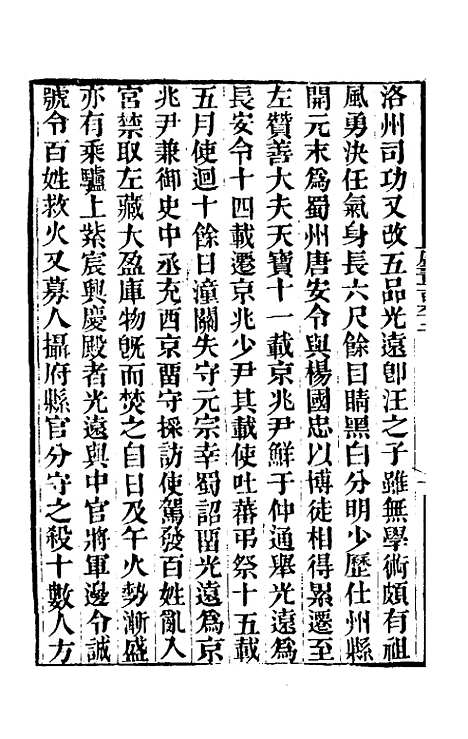 洛州司功又改五品光遠卽汪之子雖無學術頗有祖
風勇決任氣身長六尺餘目睛黑白分明少歷仕州縣
開元末爲蜀州唐安令與楊國忠以博徒相得累遷至
左贊善大夫天寶十一載京兆尹鮮于仲通舉光遠爲
長安令十四載遷京兆少尹其載使吐蕃弔祭十五載
五月使迴十餘日潼關失守元宗幸蜀詔畱光遠爲京
兆尹兼御史中丞充西京畱守採訪使駕發百姓亂入
宮禁取左藏大盈庫物旣而焚之自日及午火勢漸盛
亦有乘驢上紫宸興慶殿者光遠與中官將軍邊令誠
號令百姓救火又募人攝府縣官分守之殺十數人方